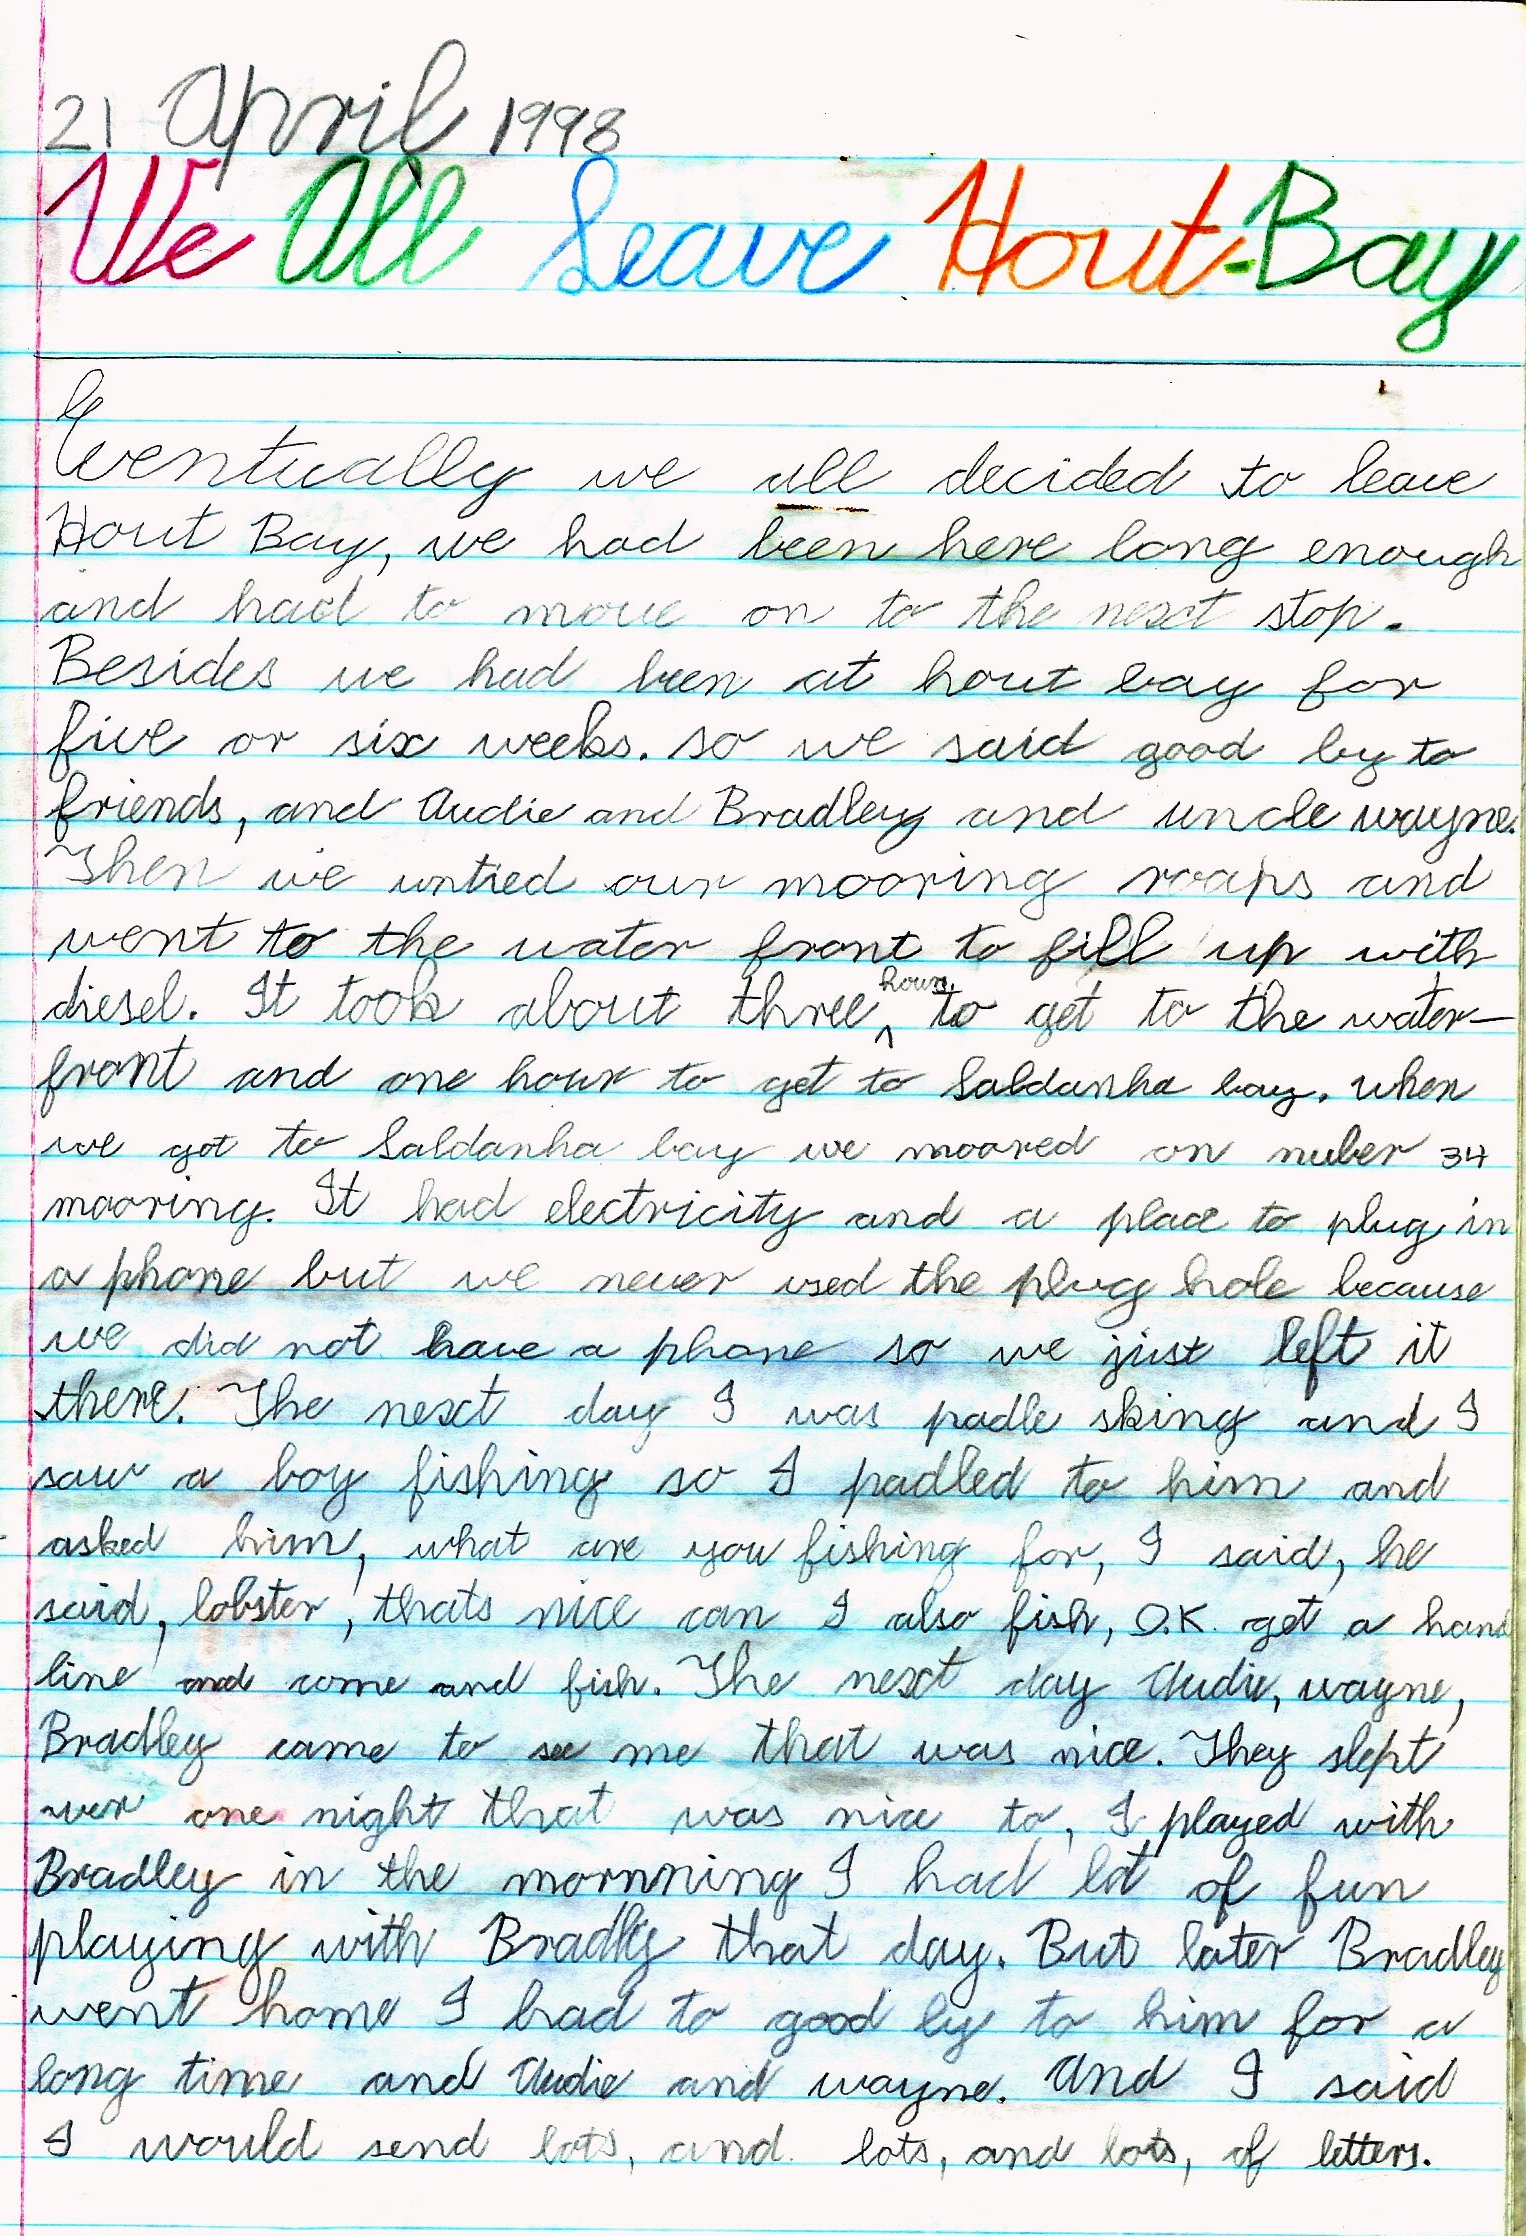 21 April 1998
We All Leave Hout-Bay
Eventually we all decided to leave
Hout Bay, we had been here long enough
and had to move on to the next stop.
Besides we had been at hout bay for
five or six weeks. so we said good by to
friends, and Audie and Bradley and uncle wayne.
Then we untied our mooring roaps and
went to the water front to fill up with
diesel. It took about three hours to get to the water-
front and one hour to get to Saldanha bay. when
we got to Saldanha bay we moored on nuber 34
mooring. It had electricity and a place to plug in
a phone but we never used the plug hole because
we did not have a phone so we just left it
there. The next day I was padle sking and I
saw a boy fishing so I padled to him and
asked him, what are you fishing for, I said, he
said, lobster, thats nice can I also fish, O.K. get a hand
line and come and fish. The next day Audie, wayne,
Bradley came to see me that was nice. They slept
over one night that was nice to, I played with
Bradley in the mornning I had lot of fun
playing with Bradley that day. But later Bradley
went home I had to good by to him for a
long time and Audie and wayne. And I said
I would send lots, and lots, and lots, of letters.